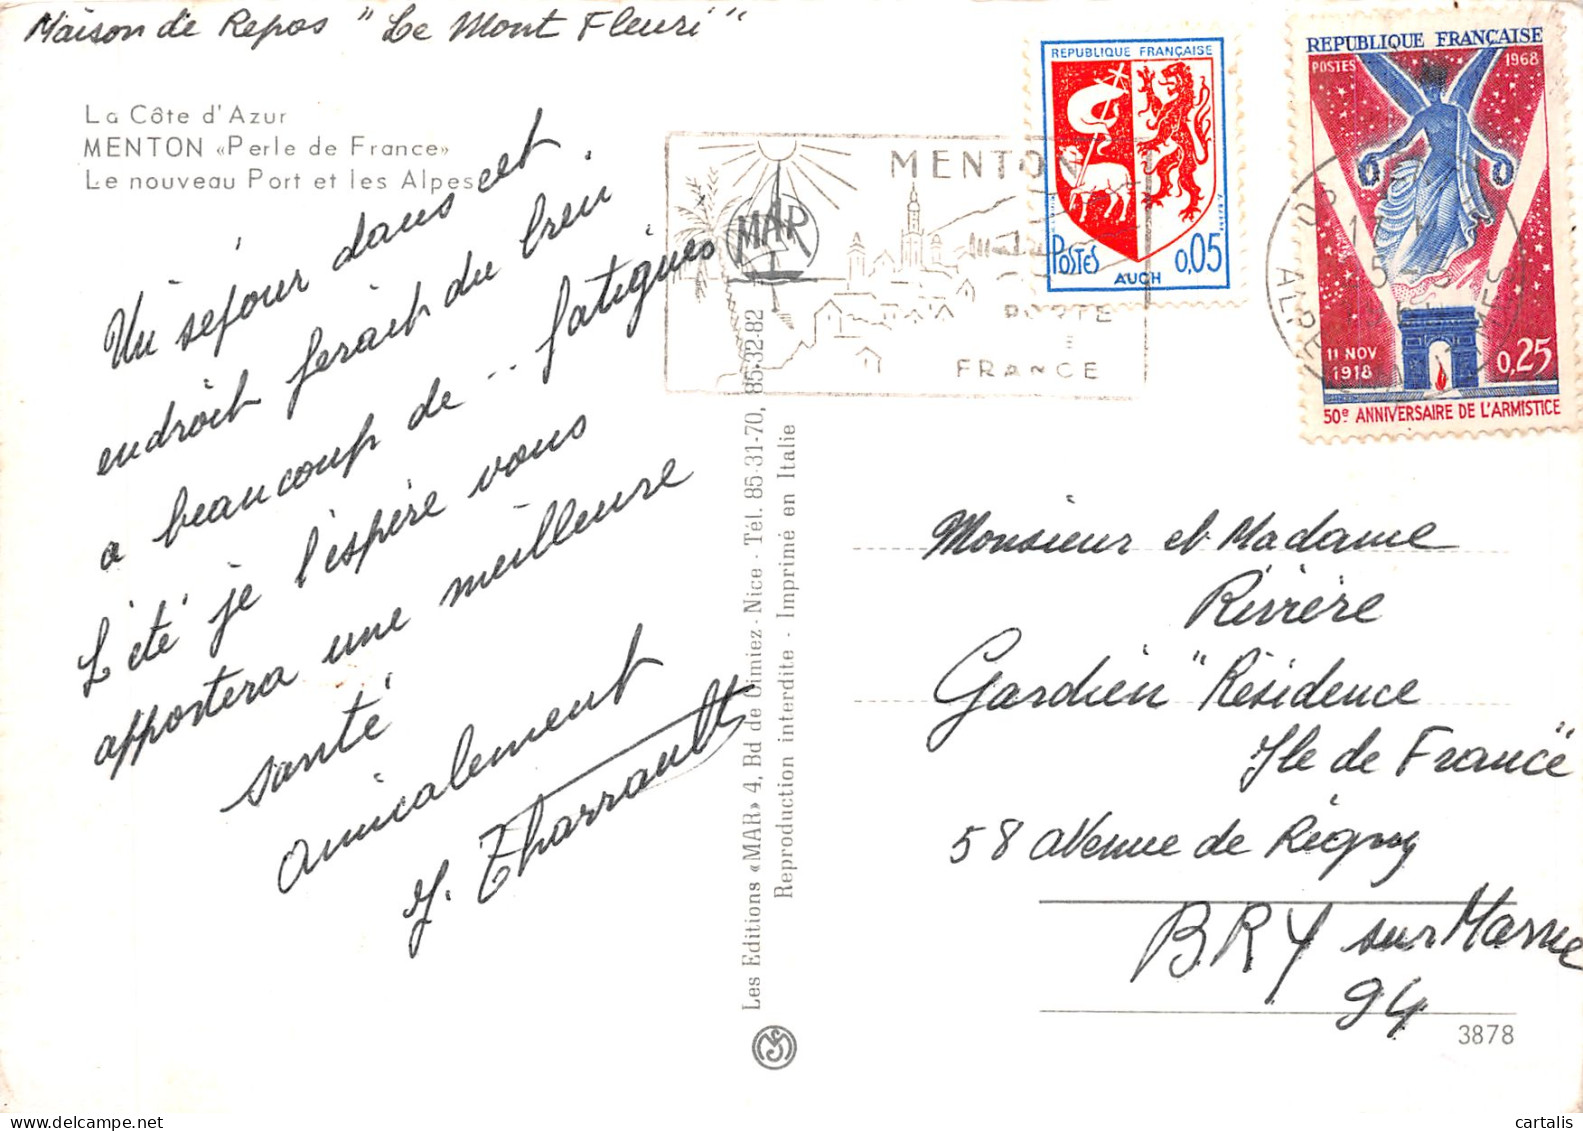 Maison de Repos "Le Mont Fleuri"
La Côte d'Azur
MENTON «Perle de France»
Le nouveau Port et les Alpes
Un séjour dans cet
endroit ferait du bien
a beaucoup de .. fatigués
L'été je l'espère vous
apportera une meilleure
santé
amicalement
J. Tharrault
Les Editions «MAR» 4, Bd de Cimiez - Nice - Tél. 85-31-70, 85-32-82
Reproduction interdite - Imprimé en Italie
MAR
MENTON
PORTE
FRANCE
REPUBLIQUE FRANÇAISE
POSTES
0,05
AUCH
REPUBLIQUE FRANÇAISE
POSTES 1968
11 NOV
1918
0,25
50e ANNIVERSAIRE DE L'ARMISTICE
Monsieur et Madame
Rivière
Gardien "Résidence
Ile de France"
58 avenue de Rigny
BRY sur Marne
94
3878
cartalis